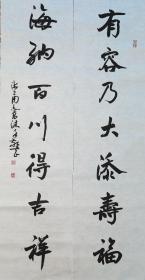 有容乃大添寿福
海纳百川得吉祥